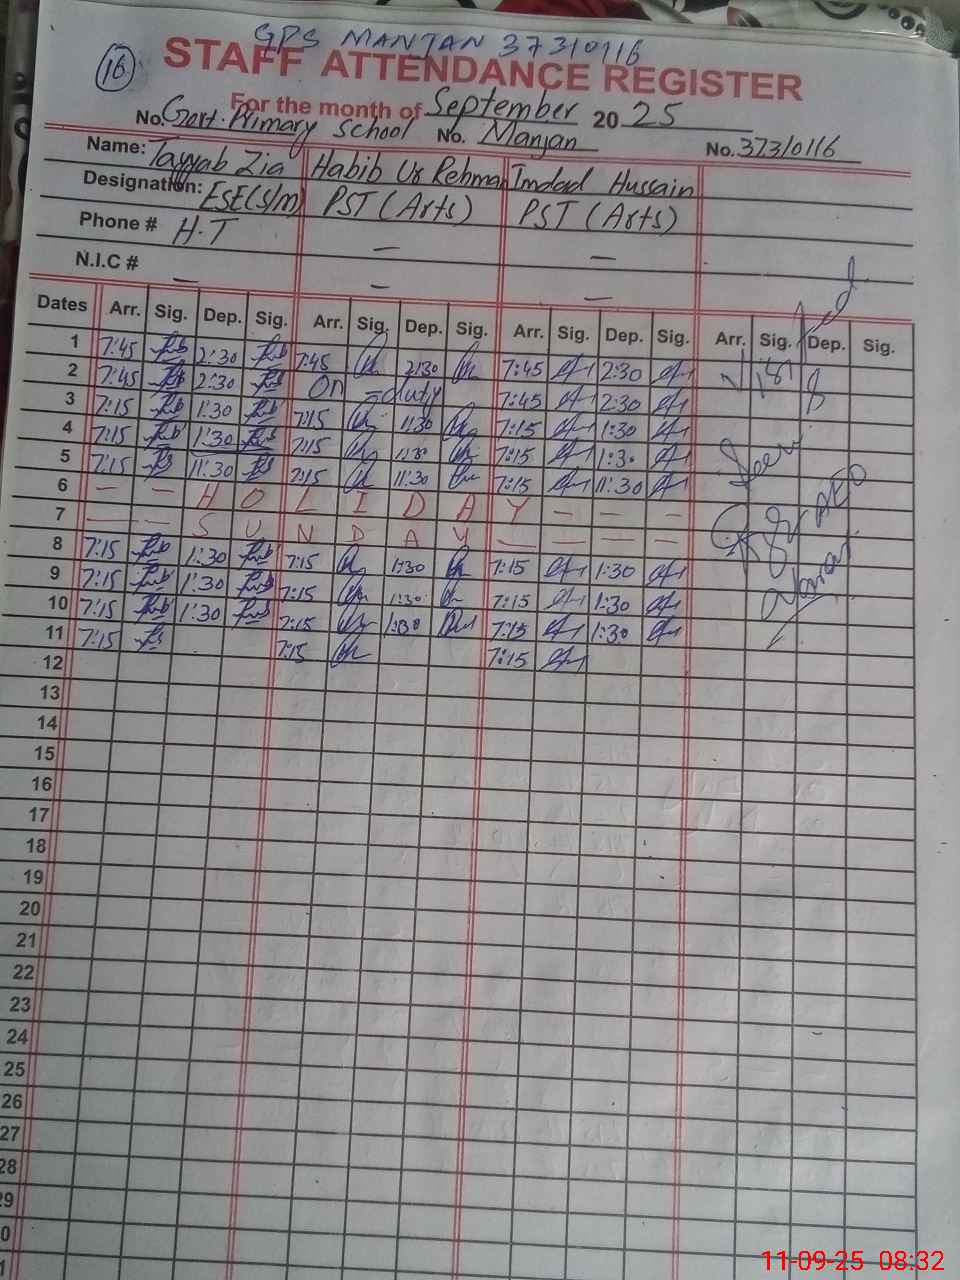 GPS MANJAN 37310116
16
STAFF ATTENDANCE REGISTER
For the month of September 20 25
No. Govt. Primary School No. Manjan No. 37310116
Name: Tayyab Zia Habib Ur Rehman Imdad Hussain
Designation: ESE(S/M) PST (Arts) PST (Arts)
Phone # H.T – –
N.I.C # – – –
Dates Arr. Sig. Dep. Sig. Arr. Sig. Dep. Sig. Arr. Sig. Dep. Sig. Arr. Sig. Dep. Sig.
1 7:45 2:30 7:45 2:30 7:45 2:30
2 7:45 2:30 On = duty 7:45 2:30
3 7:15 1:30 7:15 1:30 7:15 1:30
4 7:15 1:30 7:15 1:30 7:15 1:30
5 7:15 11:30 7:15 11:30 7:15 11:30
6 – – H O L I D A Y – – –
7 – – S U N D A Y – – – –
8 7:15 1:30 7:15 1:30 7:15 1:30
9 7:15 1:30 7:15 1:30 7:15 1:30
10 7:15 1:30 7:15 1:30 7:15 1:30
11 7:15 7:15 7:15
12
13
14
15
16
17
18
19
20
21
22
23
24
25
26
27
28
29
0
1
Visited
&
Seen
AEO
11-09-25 08:32